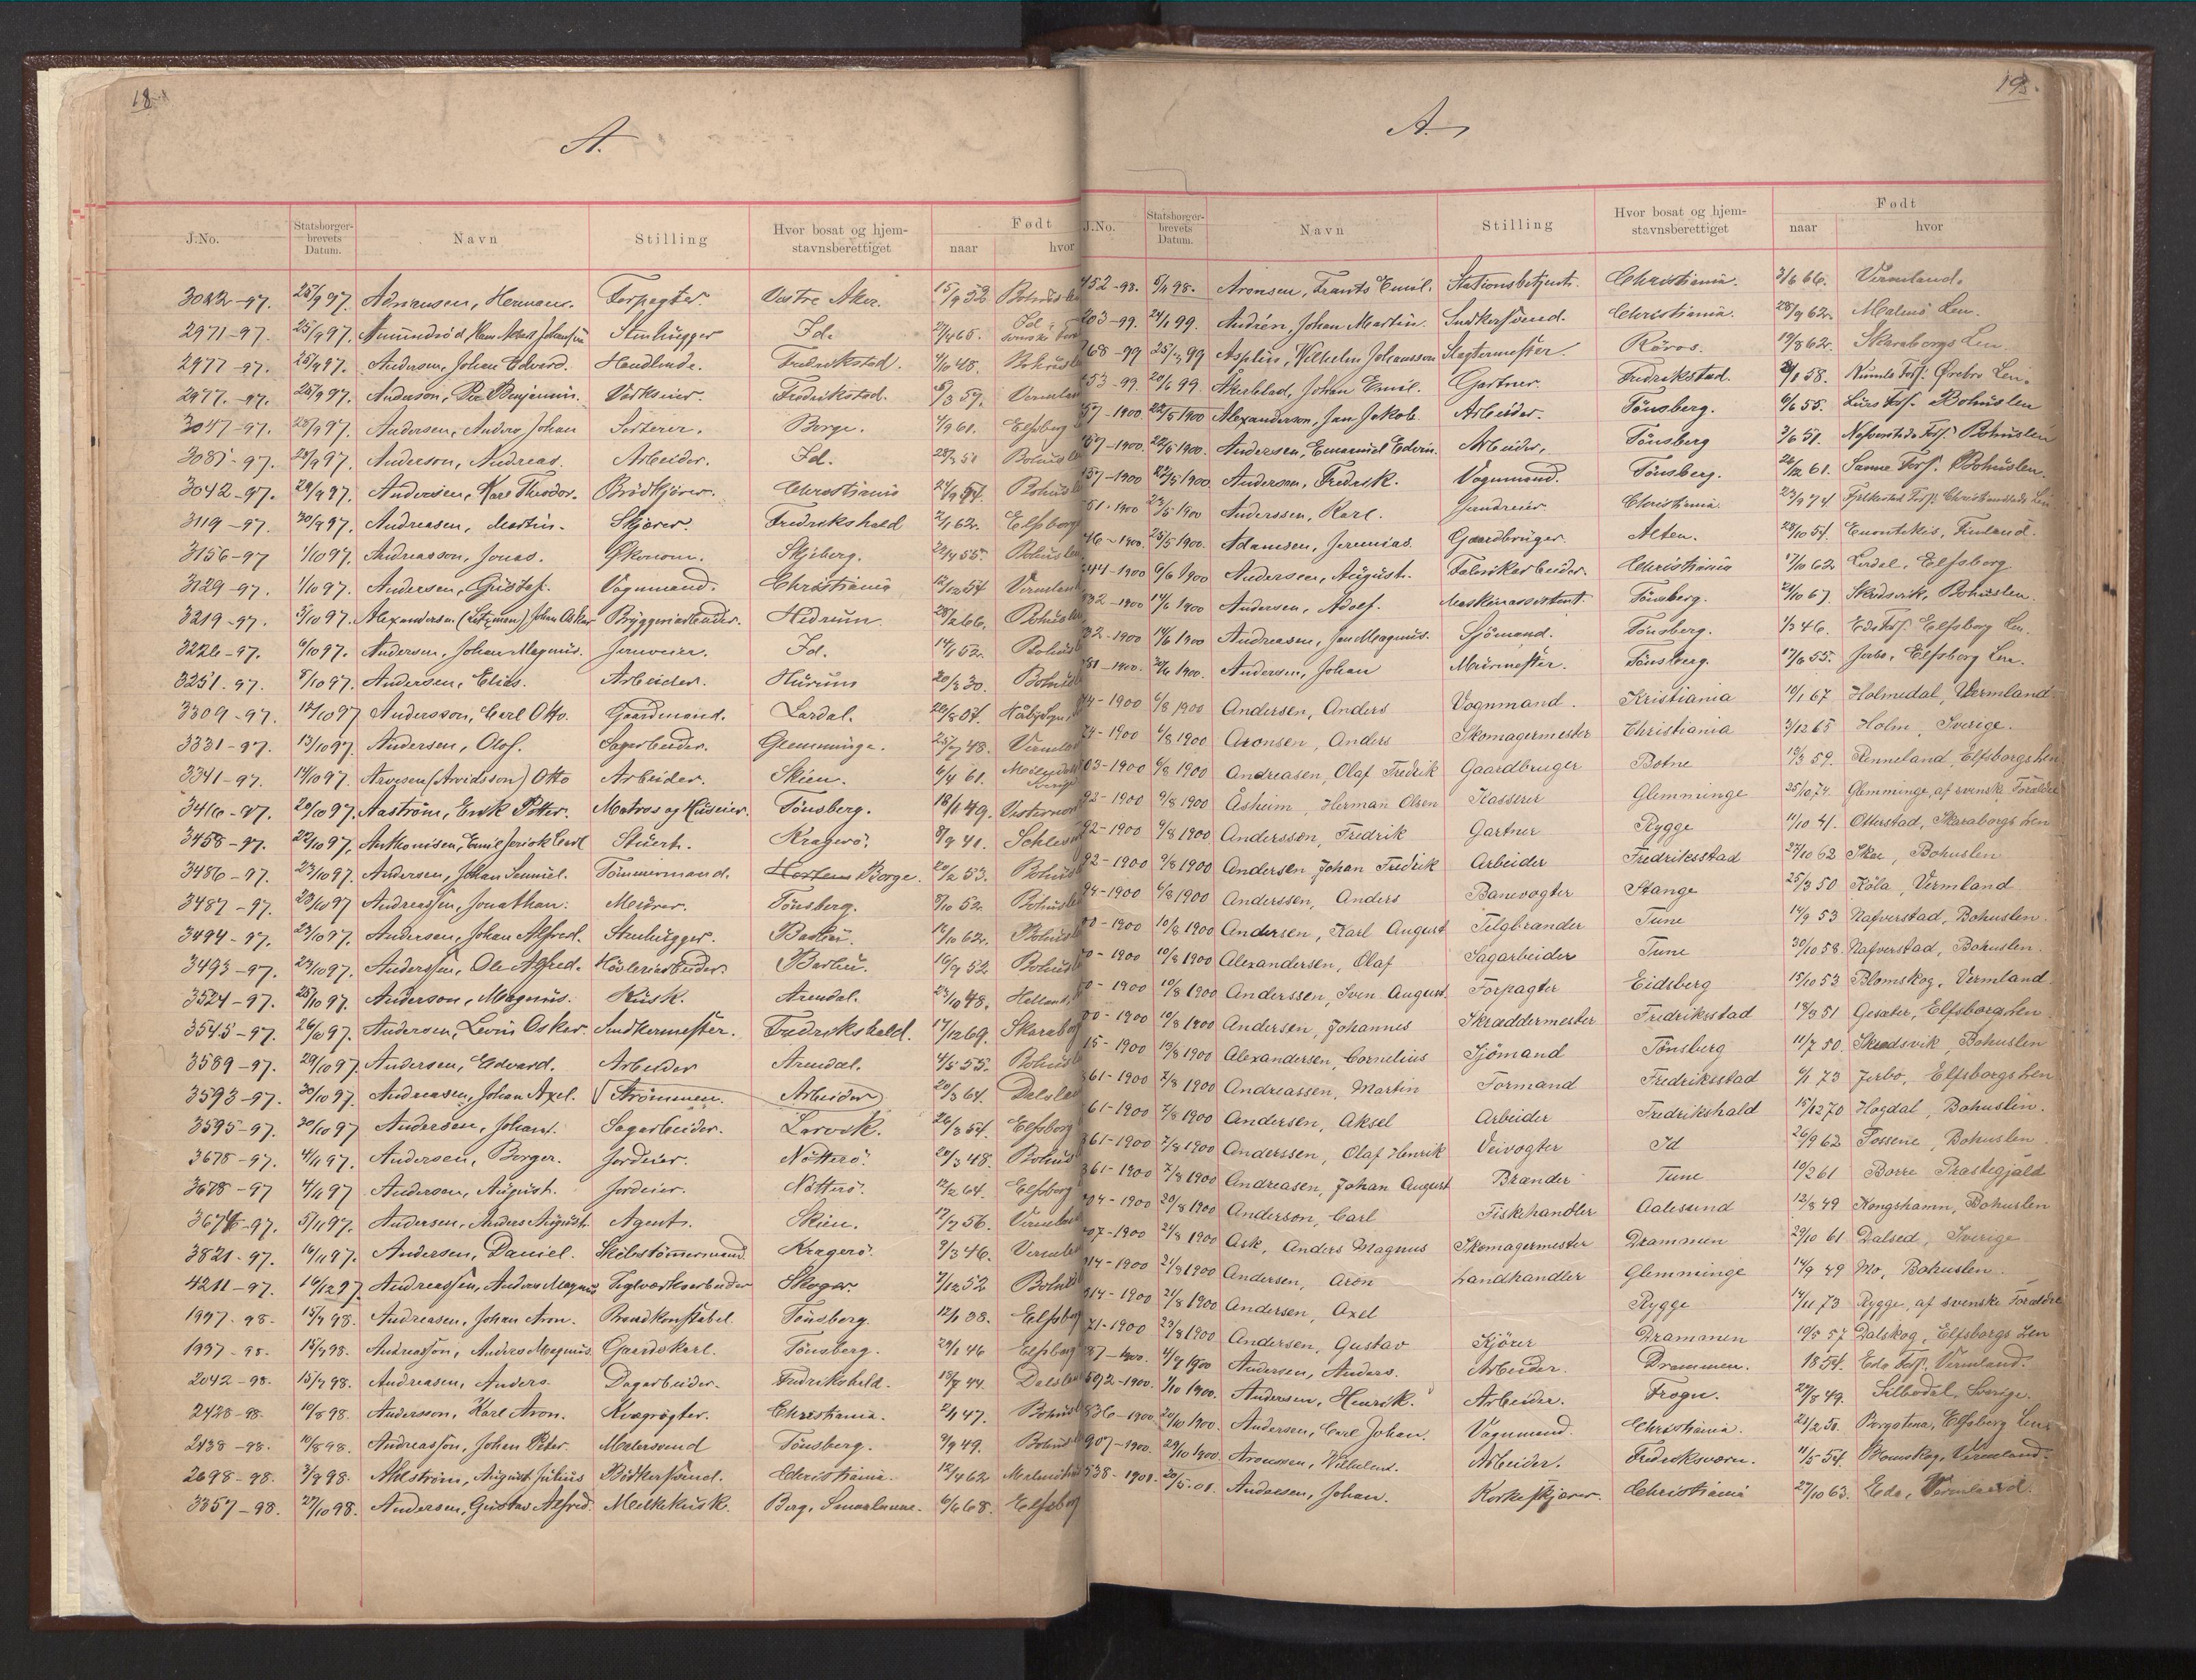 18
A.
J.No. Statsborger-brevets Datum. Navn Stilling Hvor bosat og hjem-stavnsberettiget Født naar hvor
3022-97. 25/9 97. Adriansen, Herman. Forpagter. Vestre Aker. 15/9 52 Bohus
2971-97. 25/9 97. Stenhugger Id. Id
2977-97. 25/9 97. Andersen, Johan Edvard. Handlende. Fredrikstad. 48.
2977.-97. 25/9 97. Anderson, Per Benjamin. Værkseier. Fredrikstad. 59.
3047-97. 28/9 97. Andersen, Anders Johan Sorterer. Borge. 4/9 61. Elfsborg
3085-97. 28/9 97. Anderson, Andreas. Arbeider. Id. 28/3 51 Bohus
3042-97. 29/9 97. Andersen, Karl Theodor. Brödkjörer. Christiania 24/9 Bohus
3119-97. 30/9 97. Andreasen, Martin. Skjærer. Fredrikshald 62. Elfsborg
3156-97 1/10 97. Andreasson, Jonas. Økonom. Skjeberg. 22/4 55. Bohuslen
3129-97. 1/10 97. Andersen, Gustaf. Vognmand. Christiania 12/12 54 Vermland
3219-97. 5/10 97. Alexandersen Johan Oskar Bryggeriarbeider. Hedrum 28/2 66. Bohus
3226-97. 6/10 97. Andersen, Johan Magnus. Id. 14/6 52. Bohus
3251.97. 8/10 97. Andersen, Elias. Arbeider. Hurum 20/3 30. Bohus
3309-97. 12/10 97 Andersson, Carl Otto. Gaardmand. Lardal. 20/8
3331-97. 13/10 97. Andersen, Olof. Sagarbeider. Glemminge. 25/7 48. Vermland
3341-97. 14/10 97. Arvesen (Arvidsson) Otto Arbeider. Skien. 6/4 61.
3416-97. 20/10 97. Aaström, Erik Petter. Matros og Huseier. Tönsberg. 18/1 49.
3458-97. 22/10 97. Anthonisen, Emil Stuert. Kragerö. 8/9 41. Schles
3486-97. 23/10 97. Andersen, Johan Samuel. Tömmermand. Horten Borge. 20/2 53. Bohus
3487-97. 23/10 97 Andreassen, Jonathan. Murer. Tönsberg. 8/10 52. Bohus
3494-97. 23/10 97. Andersen, Johan Alfred. Stenhugger. 10/10 62. Bohus
3493-97. 23/10 97. Anderssen, Ole Alfred. Hövleriarbeider. 16/9 52. Bohus
3524-97. 25/10 97. Anderson, Magnus. Kusk. Arendal. 23/10 48. Halland,
3545-97. 26/10 97. Andersen, Levin Oskar. Snedkermester. Fredrikshald. 17/12 69. Skarabor
3589-97. 29/10 97. Andersen, Edvard. Arbeider Arendal. 4/5 55. Bohus
3593-97. 30/10 97. Andreasen, Johan Axel. Strömmen. Arbeider 20/3 64. Dalslan
3595-97. 30/10 97 Andersen, Johan. Sagarbeider. Larvik. 26/3 54. Elfsborg
3678-97. 4/11 97. Andersen, Borger. Jordeier. Nötterö. 20/3 48. Bohus
3678-97 4/11 97 Andersen, August. Jordeier. Nötterö. 12/2 64. Elfsborg
3674-97. 5/11 97. Andersen, Anders August. Agent. Skien. 17/7 56. Vermland
3821-97. 16/11 97. Andersen, Daniel. Skibstömmermand. Kragerö. 9/3 46. Vermland
4211-97. 16/12 97. Andreassen, Anders Magnus Teglværksarbeider Skoger. 7/12 52 Bohus
1997.98. 15/7 98. Andreasen, Johan Aron. Brandkonstabel Tönsberg. 12/1 38. Elfsborg
1997-98. 15/7 98. Andreasson, Anders Magnus. Gaardskarl. Tönsberg. 29/1 46 Elfsborg
2042-98. 15/7 98. Andreasen, Anders. Dagarbeider. Fredrikshald. 18/7 44. Dalslan
2428-98. 10/8 98. Andersson, Karl Aron. Kvægrögter. Christiania. 47. Bohus
2438-98. 10/8 98. Andreasson, Johan Peter. Malersvend Tönsberg. 9/9 49. Bohus
2698-98. 3/9 98. Ahlström, August Julius Bödkersvend. Christiania. 12/4 62 Malmöhus
3357-98. 27/10 98. Andersen, Gustav Alfred. Melkekusk. Berg, Smaalenene. 6/6 68. Elfsborg
19.
A.
J.No. Statsborger-brevets Datum. Navn Stilling Hvor bosat og hjem-stavnsberettiget Født naar hvor
452-98. 98. Aronsen, Frants Emil. Stationsbetjent. Christiania. 3/6 66. Vermland.
203-99. 24/1 99. Andrén, Johan Martin. Snedkersvend. Christiania. 28/9 62. Malmö Len.
768-99 25/3 99 Asplin, Vilhelm Johansson Slagtermester. Röros. 19/8 62. Skaraborgs Len
53-99. 20/6 99. Åkerblad, Johan Emil. Gartner. Fredrikstad. 58. Kumla Fors. Örebro Len.
57-1900. 22/5 1900 Alexanderson, Jan Jakob. Arbeider. Tönsberg. 6/6 55. Lurs Fors. Bohuslen
57-1900. 22/5 1900. Andersen, Emanuel Edvin. Arbeider. Tönsberg 3/6 51. Nafverstads Fors. Bohuslen
57-1900 22/5 1900. Anderson, Fredrik. Vognmand. Tönsberg. 26/12 61. Sanne Fors. Bohuslen.
51.1900 23/5 1900 Anderssen, Karl. Jandreier Christiania. 23/9 74.
46-1900. 25/5 1900. Adamsen, Jeremias. Gaardbruger. Alten. 28/10 54. Enontekis, Finland.
44-1900 6/6 1900 Andersen, August. Fabrikarbeider. Christiania 17/10 62 Elfsborg
32-1900 14/6 1900 Andersen, Adolf. Maskinassistent. Tönsberg. 24/10 67. Skredsvik, Bohuslen.
32-1900 14/6 1900 Andreasen, Jan Magnus. Sjömand. Tönsberg. 1/3 46. Eds Fors. Elfsborg Len.
31-1900. 20/6 1900. Andersen, Johan Murmester. Tönsberg. 17/6 55. Jerbo, Elfsborg Len.
74-1900 6/8 1900 Andersen, Anders Vognmand. Kristiania 19/1 67 Holmedal, Wermland
74-1900 6/8 1900 Aronsen, Anders Skomagermester Christiania 3/12 65 Holm, Sverige.
03-1900 6/8 1900 Andreasen, Olaf Fredrik Gaardbruger Botne 19/3 59. Renneland, Elfsborgs Len
92-1900 9/8 1900 Åsheim, Herman Olsen Kasserer Glemminge 25/10 74. Glemminge, af svenske Forældre
92-1900 9/8 1900 Andersson, Fredrik Gartner Rygge 11/10 41. Otterstad, Skaraborgs Len
92-1900 9/8 1900 Andersen Johan Fredrik Arbeider Fredriksstad 27/10 62 Skee, Bohuslen
94-1900 6/8 1900 Anderssen, Anders Banevogter Stange 25/3 50 Köla, Vermland
00-1900 10/8 1900 Andersen, Karl August Telgbrænder Tune 14/9 53 Nafverstad, Bohuslen.
00-1900 10/8 1900 Alexandersen, Olaf Sagarbeider Tune 30/10 58. Nafverstad, Bohuslen.
00-1900 10/8 1900 Anderssen, Sven August. Forpagter Eidsberg 15/10 53 Blomskog, Vermland.
00-1900 10/8 1900 Andersen, Johannes Skræddermester Fredriksstad 18/3 51 Gesater, Elfsborgs Len
15-1900 13/8 1900 Alexandersen, Cornelius Sjömand Tönsberg 11/7 50. Skredsvik, Bohuslen
361-1900 7/8 1900 Andreassen, Martin Formand Fredriksstad 6/1 73 Jerbo, Elfsborgs Len
61-1900 7/8 1900 Andersen, Aksel Arbeider Fredrikshald 15/12 70 Hogdal, Bohuslen.
361-1900 7/8 1900 Anderssen, Olaf Henrik Veivogter Id 26/9 62 Tossene, Bohuslen
361-1900 7/8 1900 Andreasen, Johan August Brænder Tune 10/2 61 Borre Præstegjæld
04-1900 20/8 1900 Anderson, Carl Fiskehandler Aalesund 12/8 49 Kongshamn, Bohuslen
07-1900 21/8 1900 Ask, Anders Magnus Skomagermester Drammen 29/10 61 Dalsed, Sverige
914-1900 21/8 1900 Andersen, Aron Landhandler Glemminge 14/9 49 Mo, Bohuslen.
914-1900 21/8 1900 Andersen, Axel Rygge 14/11 73 Rygge, af svenske Forældre
21-1900 23/8 1900 Andersen, Gustav Kjörer Drammen 10/5 57 Dalskog, Elfsborgs Len
87-1900. 4/9 1900 Andersen, Anders. Arbeider. Drammen. 1854. Eda Fors. Vermland.
592-1900. 1/10 1900. Andersen, Henrik. Arbeider. Frogn. 29/8 49. Silbodal, Sverige.
836-1900. 20/10 1900. Andersen, Carl Johan. Vognmand. Christiania. 21/2 50. Borgstena, Elfsborg Len
907-1900. 29/10 1900. Aronssen, Vilhelm. Arbeider. Fredriksværn. 11/5 54. Blomskog, Vermland.
538-1901. 20/5.01. Andersen, Johan. Korkeskjærer. Christiania 27/10 63. Eda, Vermland.